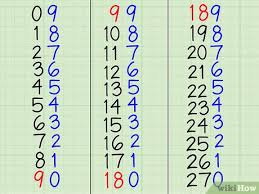 09
18
27
36
45
54
63
72
81
90
99
108
117
126
135
144
153
162
171
180
189
198
207
216
225
234
243
252
261
270
wikiHow